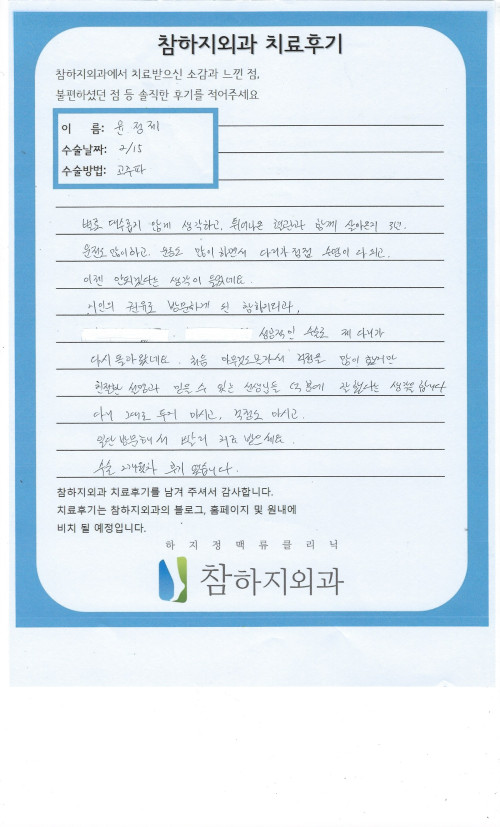 참하지외과 치료후기
참하지외과에서 치료받으신 소감과 느낀 점,
불편하셨던 점 등 솔직한 후기를 적어주세요
이 름: 윤정제
수술날짜: 2/15
수술방법: 고주파
별로 대수롭지 않게 생각하고, 튀어나온 혈관과 함께 살아온지 3년.
운전도 많이하고, 운동도 많이 하면서 다리가 점점 수명이 다 되고.
이젠 안되겠다는 생각이 들었네요.
지인의 권유로 방문하게 된 참하지외과,
성공적인 수술로 제 다리가
다시 돌아왔네요. 처음 아무것도 몰라서 걱정을 많이 했지만
친절한 설명과 믿을 수 있는 선생님들 덕분에 잘 했다는 생각을 합니다
아니 그대로 두지 마시고, 걱정도 마시고.
일단 방문해서 빨리 치료 받으세요.
수술 2개월차 후기 였습니다.
참하지외과 치료후기를 남겨 주셔서 감사합니다.
치료후기는 참하지외과의 블로그, 홈페이지 및 원내에
비치 될 예정입니다.
하지정맥류클리닉
참하지외과